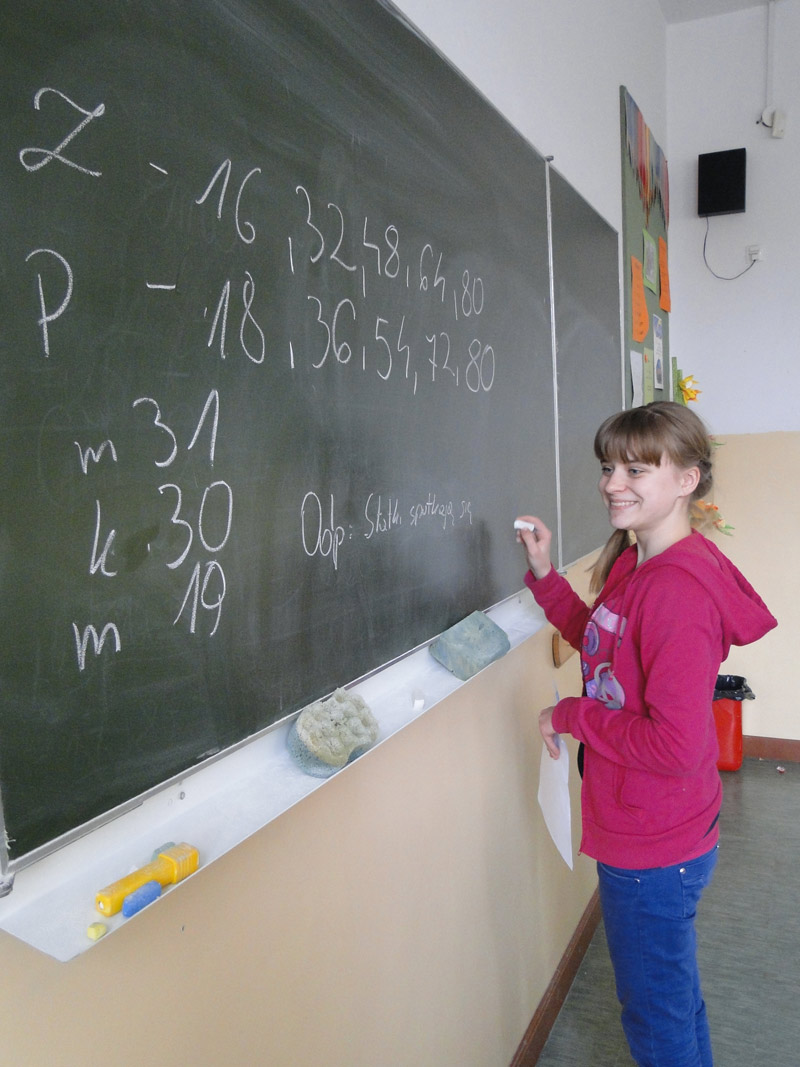 Z - 16, 32, 48, 64, 80
P - 18, 36, 54, 72, 80
m 31
k. 30
m 19
Odp: Statki spotkają się